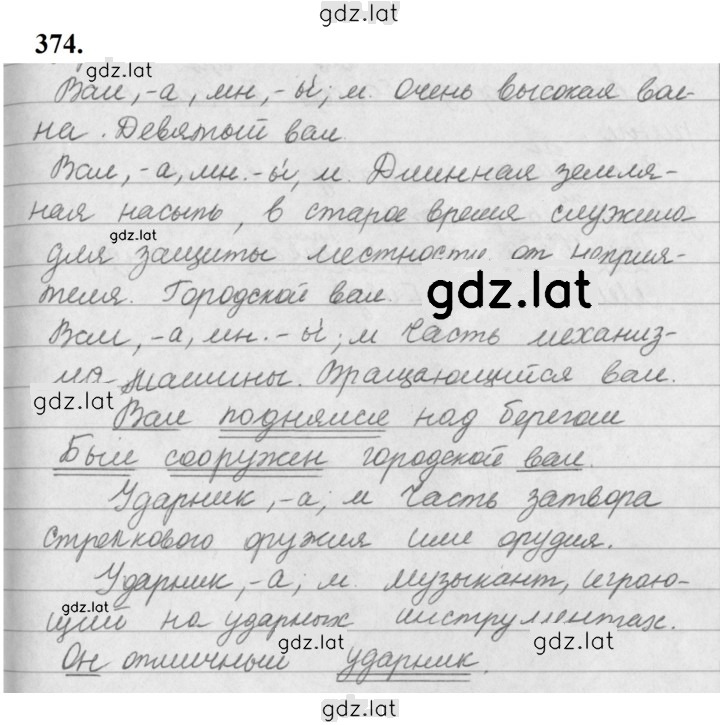 gdz.lat
374.
gdz.lat
Вал, -а, мн, -ы́; м. Очень высокая вол-
на. Девятый вал.
Вал, -а, мн. -ы́, м. Длинная земля-
ная насыпь, в старое время служила
gdz.lat
для защиты местности от неприя-
теля. Городской вал.
gdz.lat
Вал, -а, мн. -ы́; м Часть механиз-
ма машины. Вращающийся вал.
gdz.lat
Вал поднялся над берегом
Был сооружен городской вал.
Ударник, -а; м Часть затвора
стрелкового оружия или орудия.
Ударник, -а; м. музыкант, играю-
gdz.lat
щий на ударных инструментах.
gdz.lat
gdz.lat
Он отличный ударник.
gdz.lat